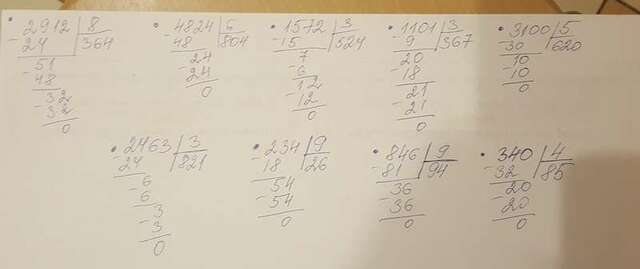 2912 | 8
-24 | 364
-51
48
-32
-32
0
4824 | 6
-48 | 804
24
-24
0
1572 | 3
-15 | 524
7
-6
12
-12
0
1101 | 3
-9 | 367
20
-18
21
-21
0
3100 | 5
-30 | 620
10
-10
0
2463 | 3
-24 | 821
6
-6
3
-3
0
234 | 9
-18 | 26
54
-54
0
846 | 9
-81 | 94
36
-36
0
340 | 4
-32 | 85
20
-20
0